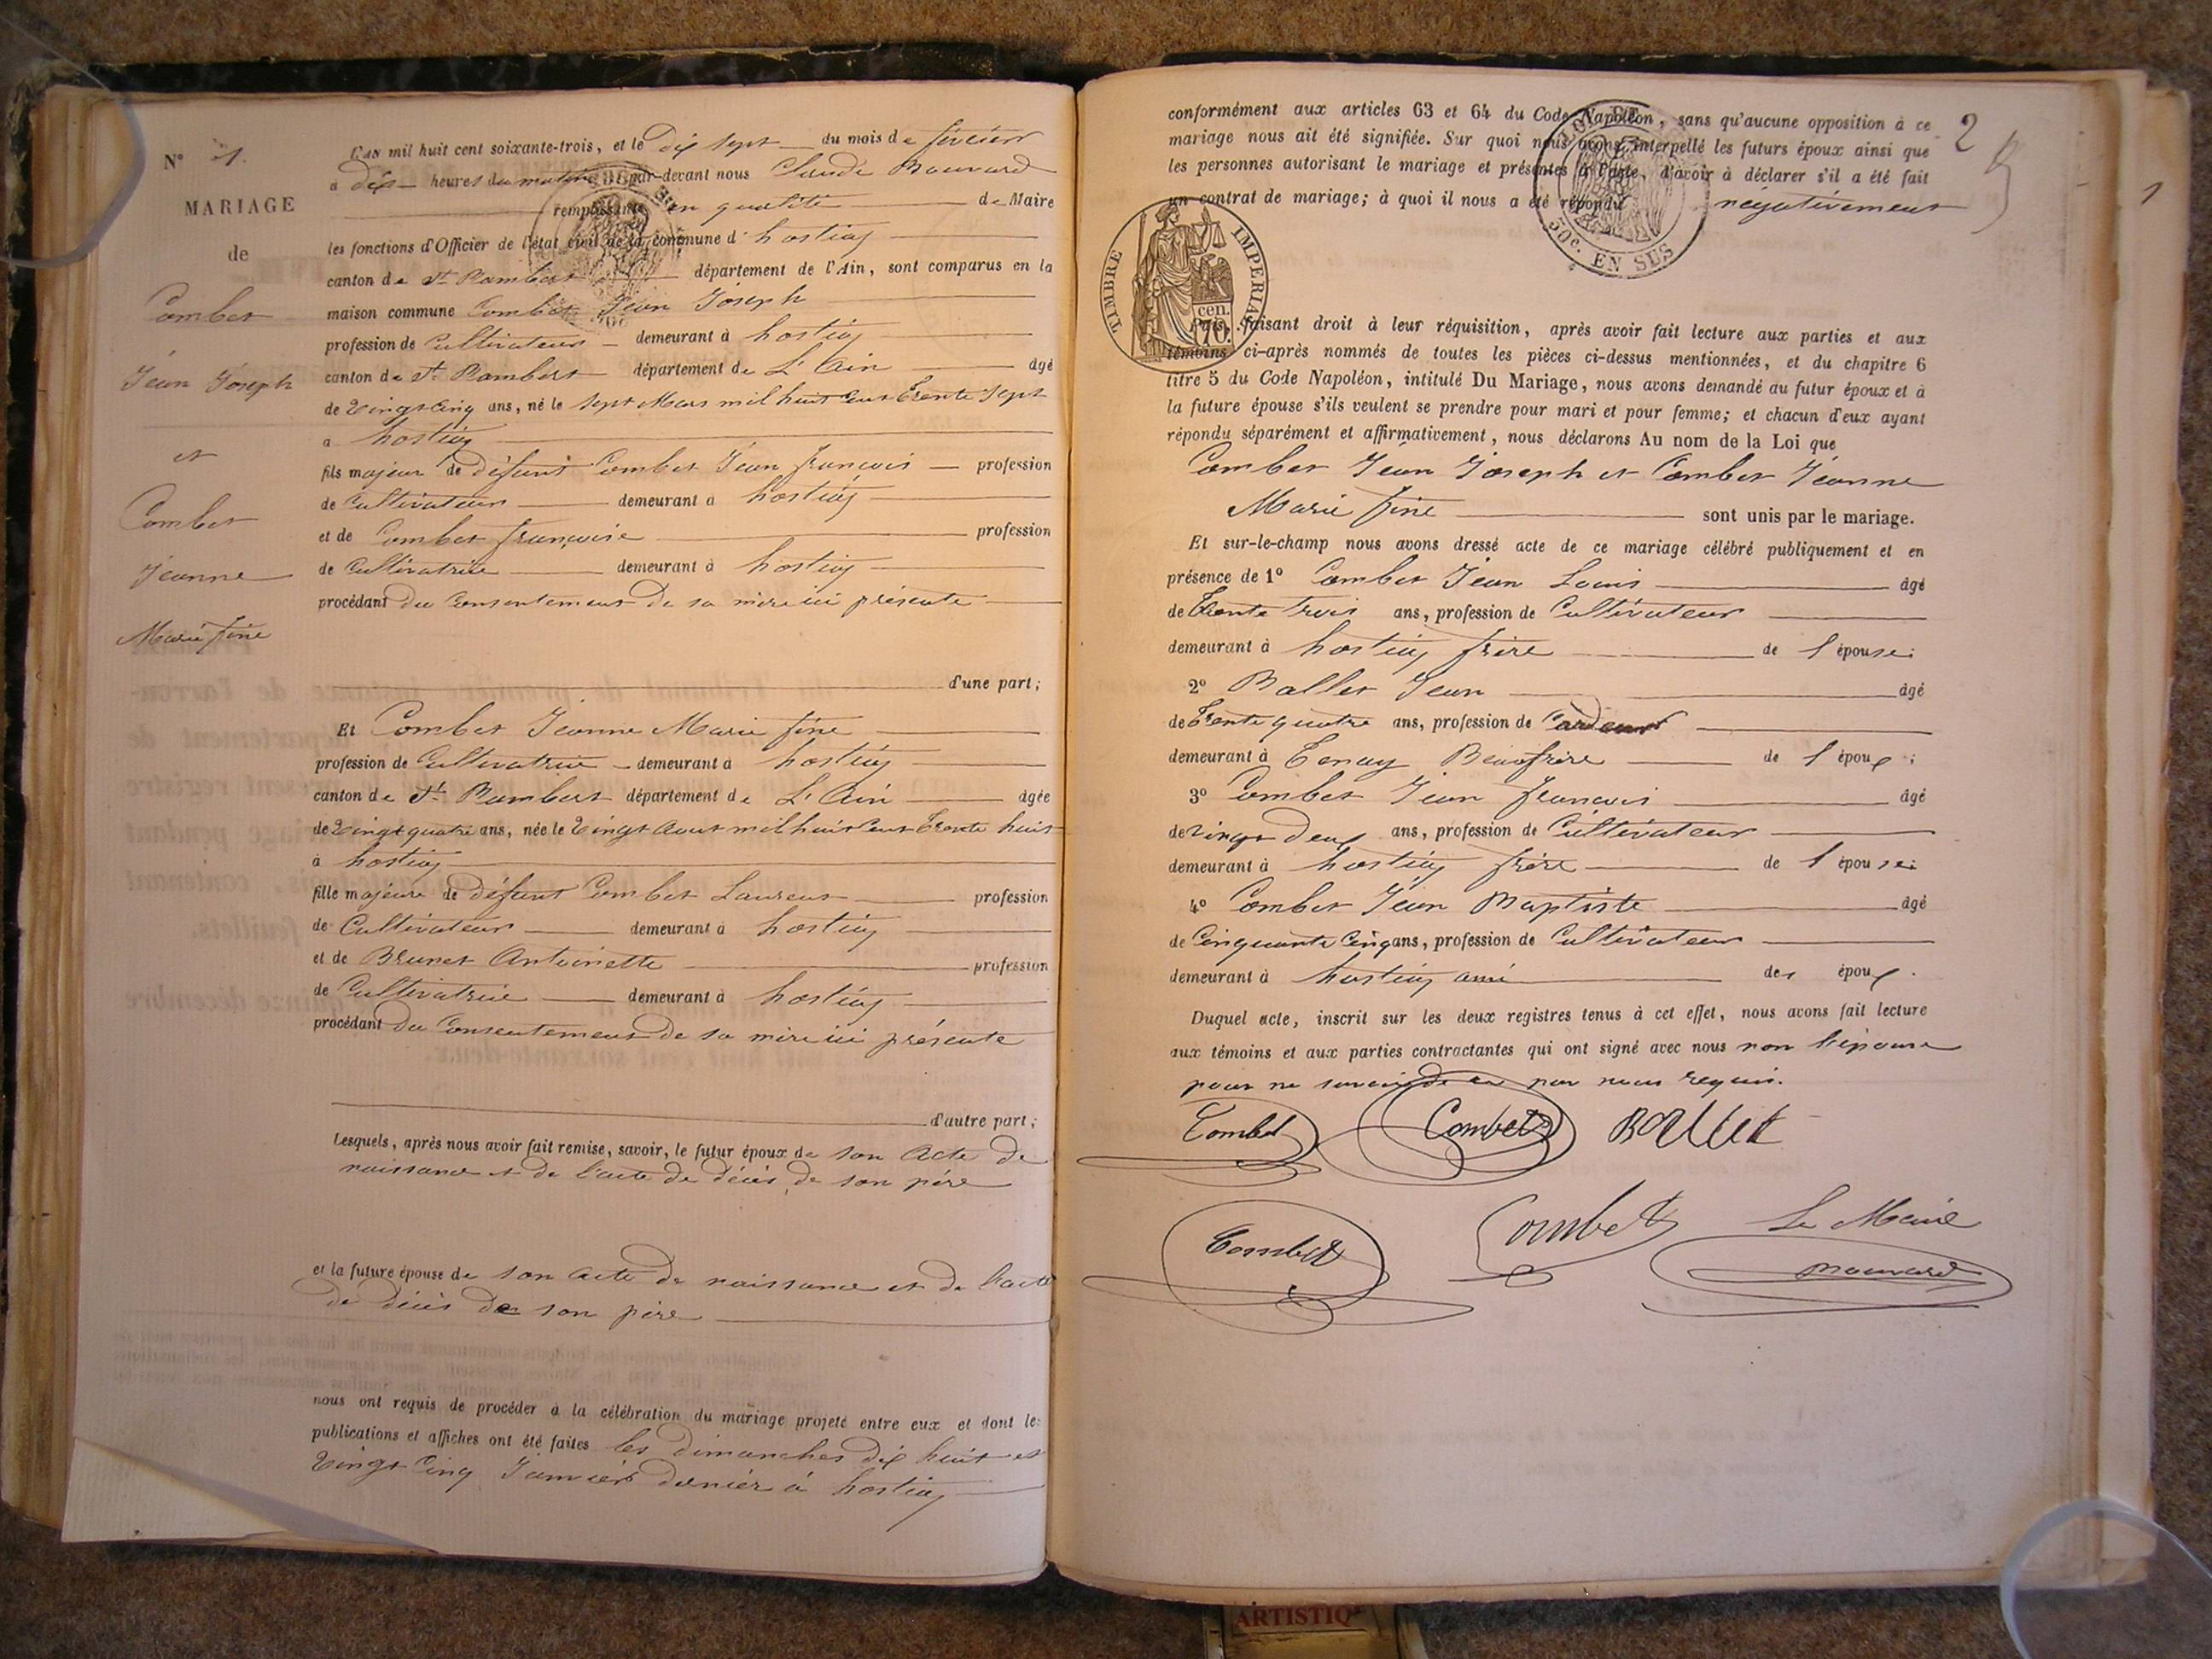 N° 1.
MARIAGE
de
Combet
Jean Joseph
et
Combet
Jeanne
Marie fine
L'an mil huit cent soixante-trois, et le dix sept du mois de février
à dix heures du matin par-devant nous Claude Bouvard
remplissant en qualité de Maire
les fonctions d'Officier de l'état civil de la commune d'hostiaz
canton de St Rambert département de l'Ain, sont comparus en la
maison commune Combet Jean Joseph
profession de Cultivateur demeurant à hostiaz
canton de St Rambert département de L'Ain âgé
de vingt cinq ans, né le sept Mars mil huit cent trente sept
à hostiaz
fils majeur de défunt Combet Jean françois profession
de Cultivateur demeurant à hostiaz
et de Combet françoise profession
de Cultivatrice demeurant à hostiaz
procédant du consentement de sa mère ici présente
d'une part;
Et Combet Jeanne Marie fine
profession de Cultivatrice demeurant à hostiaz
canton de St Rambert département de L'Ain âgée
de vingt quatre ans, née le vingt Aout mil huit cent trente huit
à hostiaz
fille majeure de défunt Combet Laurent profession
de Cultivateur demeurant à hostiaz
et de Brunet Antoinette profession
de Cultivatrice demeurant à hostiaz
procédant du consentement de sa mère ici présente
d'autre part;
Lesquels, après nous avoir fait remise, savoir, le futur époux de son acte de
naissance et de l'acte de décès de son père
et la future épouse de son acte de naissance et de l'acte
de décès de son père
nous ont requis de procéder à la célébration du mariage projeté entre eux et dont les
publications et affiches ont été faites les dimanches dix huit et
vingt cinq Janvier dernier à hostiaz
2
1
conformément aux articles 63 et 64 du Code Napoléon, sans qu'aucune opposition à ce
mariage nous ait été signifiée. Sur quoi nous avons interpellé les futurs époux ainsi que
les personnes autorisant le mariage et présentes à l'acte, d'avoir à déclarer s'il a été fait
un contrat de mariage; à quoi il nous a été répondu négativement
50c. EN SUS
TIMBRE IMPERIAL
cen.
70.
Puis, faisant droit à leur réquisition, après avoir fait lecture aux parties et aux
témoins ci-après nommés de toutes les pièces ci-dessus mentionnées, et du chapitre 6
titre 5 du Code Napoléon, intitulé Du Mariage, nous avons demandé au futur époux et à
la future épouse s'ils veulent se prendre pour mari et pour femme; et chacun d'eux ayant
répondu séparément et affirmativement, nous déclarons Au nom de la Loi que
Combet Jean Joseph et Combet Jeanne
Marie fine sont unis par le mariage.
Et sur-le-champ nous avons dressé acte de ce mariage célébré publiquement et en
présence de 1° Combet Jean Louis âgé
de trente trois ans, profession de Cultivateur
demeurant à hostiaz frère de l épouse;
2° Ballet Jean âgé
de trente quatre ans, profession de Cardeur
demeurant à Tenay Beaufrère de l époux;
3° Combet Jean françois âgé
de vingt deux ans, profession de Cultivateur
demeurant à hostiaz frère de l épouse;
4° Combet Jean Baptiste âgé
de Cinquante Cinq ans, profession de Cultivateur
demeurant à hostiaz ami des époux.
Duquel acte, inscrit sur les deux registres tenus à cet effet, nous avons fait lecture
aux témoins et aux parties contractantes qui ont signé avec nous non l'épouse
pour ne savoir de ce par nous requis.
Combet Combet BaLLet
Combet Combet Le Maire
Bouvard
ARTISTIQ